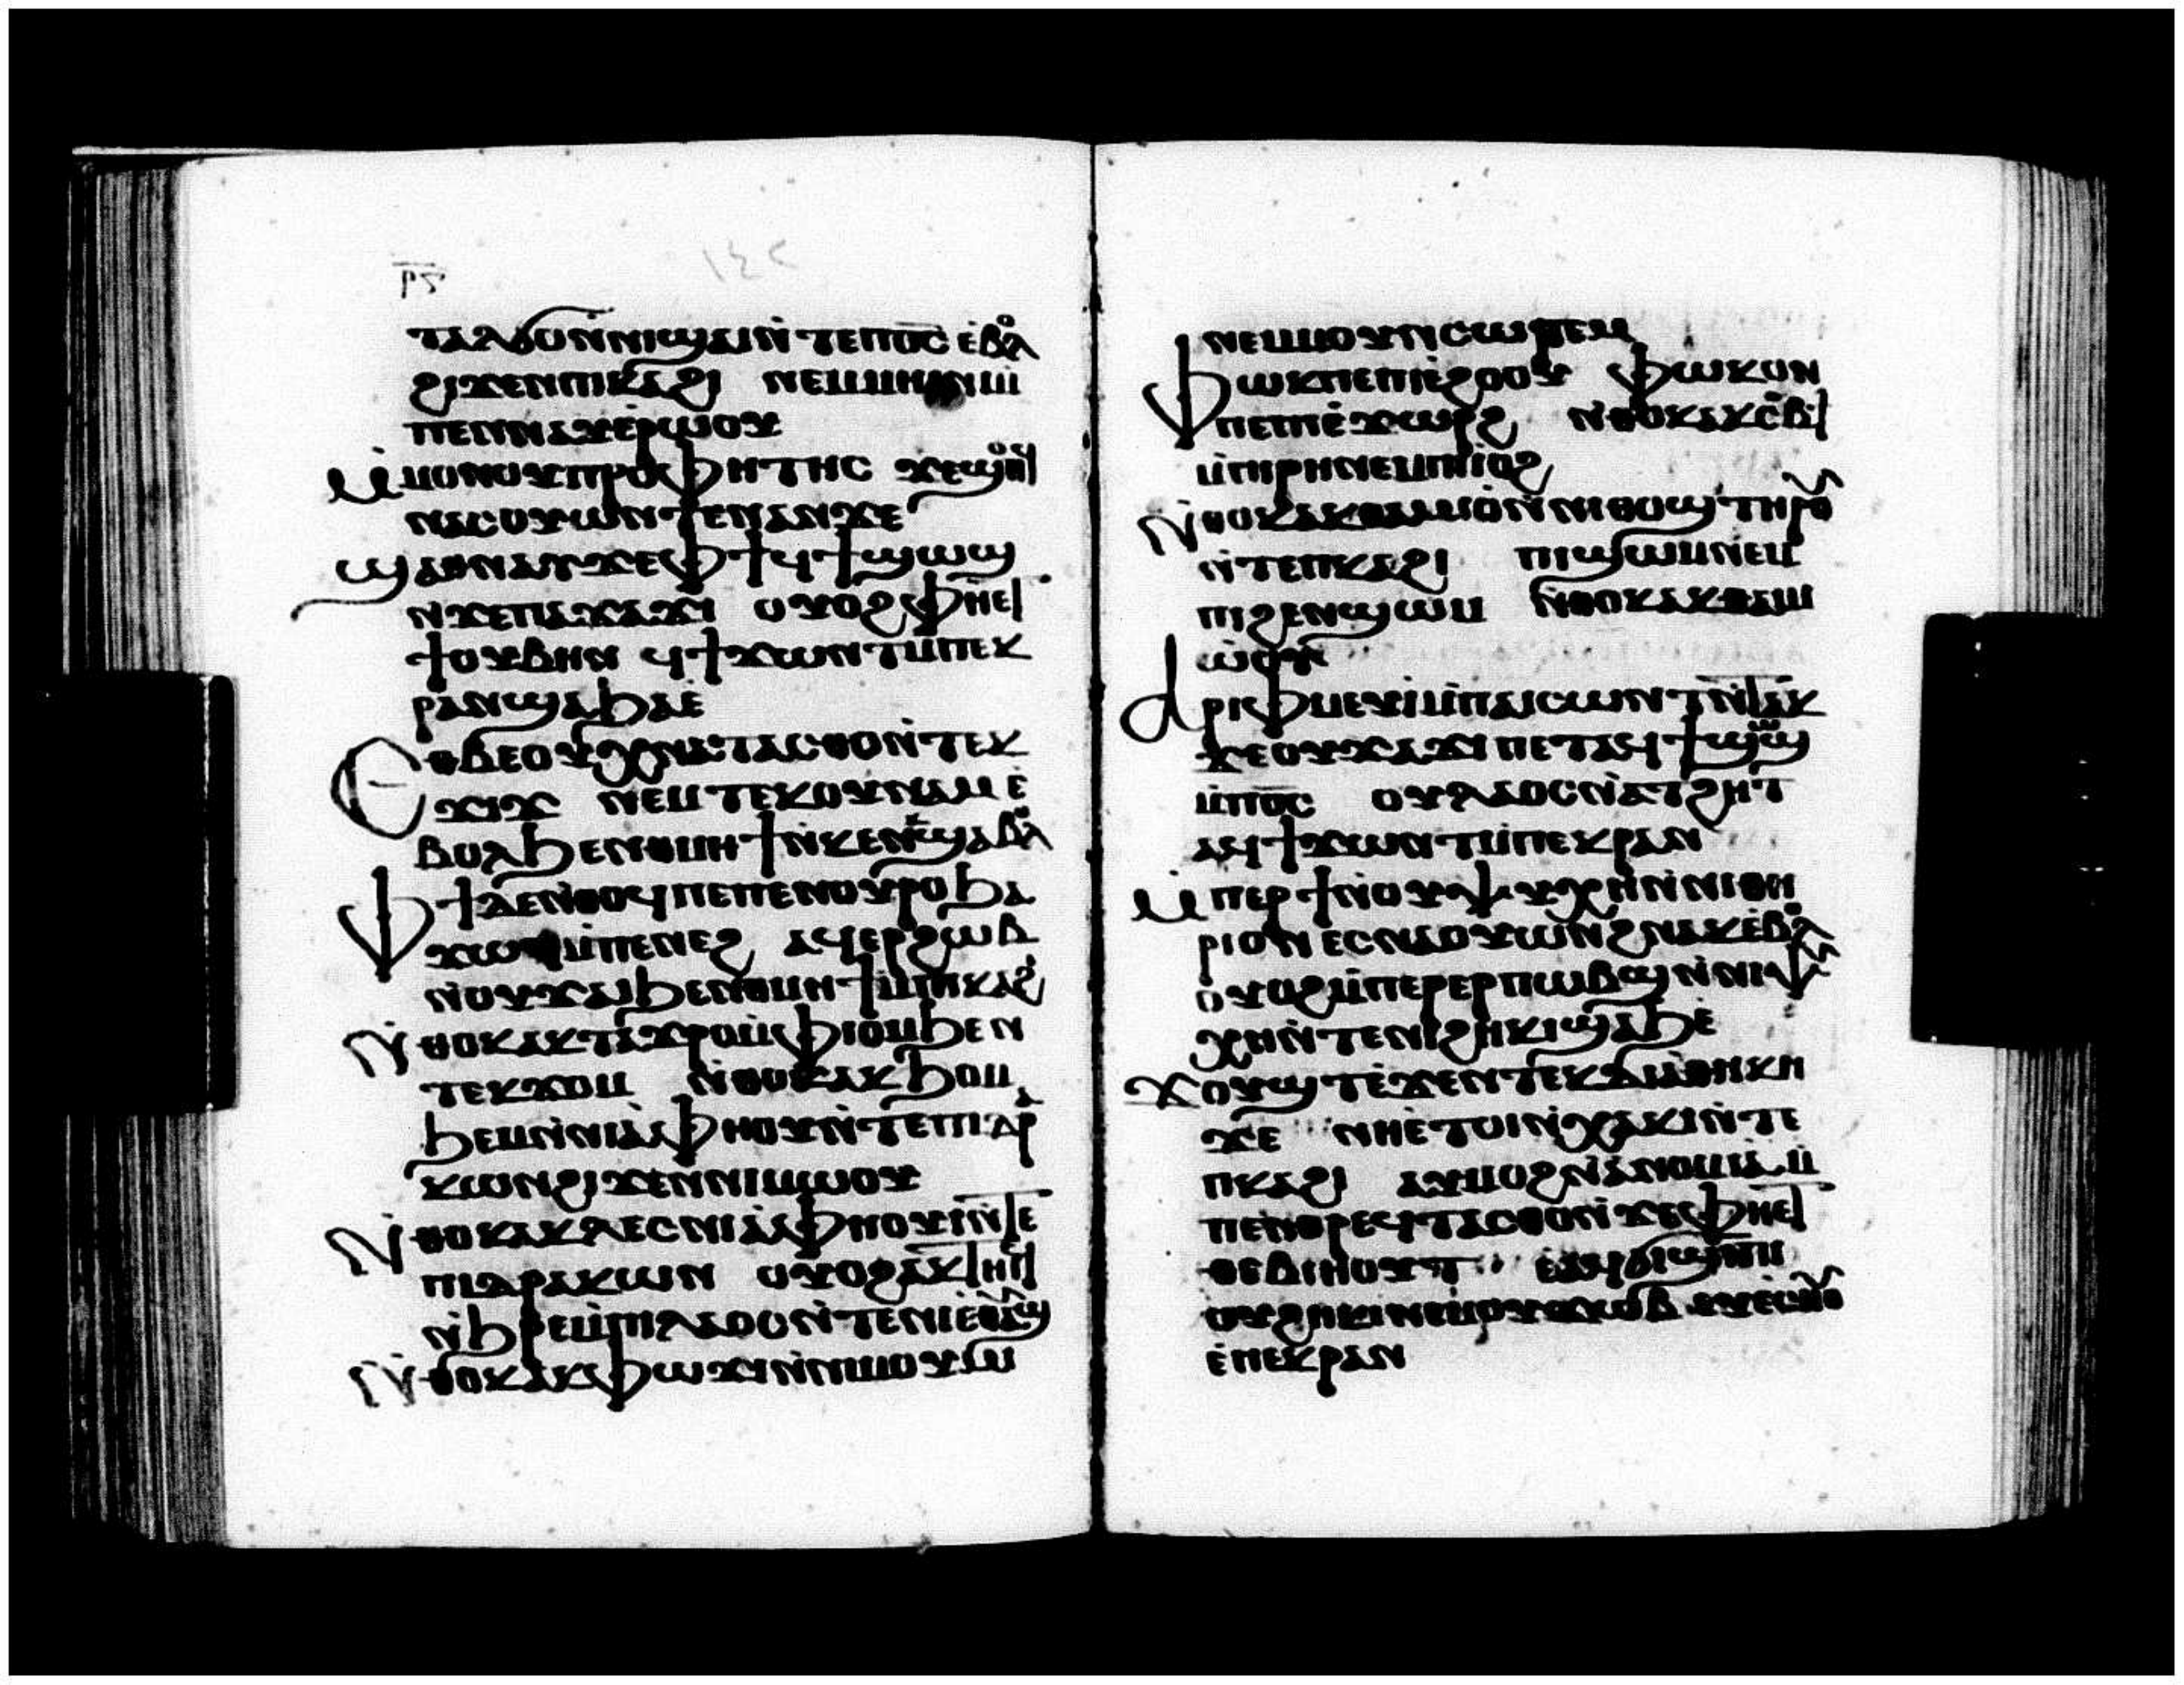 ⲣ̅ϛ̅
ⲧⲁⲗϭⲟⲛ̀ⲛⲓϣⲁⲓⲛ̀ⲧⲉⲡⲟ̅ⲥ̅ ⲉ̀ⲃⲟⲗ
ϩⲓϫⲉⲛⲡⲓⲕⲁϩⲓ ⲛⲉⲙⲙⲏⲓⲛⲓ ⲙ̀
ⲡⲉⲛⲛⲁⲩⲉ̀ⲣⲱⲟⲩ
ⲙ̀ⲙⲟⲛⲟⲩⲡⲣⲟⲫⲏⲧⲏⲥ ϫⲉϣⲟⲡ
ⲛⲁⲥⲟⲩⲱⲛⲧⲉⲛⲁⲛϫⲉ
ϣⲁⲑⲛⲁⲩϫⲉⲫϯϥϯϣⲱϣ
ⲛ̀ϫⲉⲡⲓϫⲁϫⲓ ⲟⲩⲟϩ ⲫⲏⲉⲧ
ϯⲟⲩⲃⲏⲛ ϥϯϫⲱⲛⲧⲙ̀ⲡⲉⲕ
ⲣⲁⲛϣⲁⳉⲁⲉ̀
ⲉⲑⲃⲉⲟⲩⲭⲛⲁⲧⲁⲥⲑⲟⲛ̀ⲧⲉⲕ
ϫⲓϫ ⲛⲉⲙ ⲧⲉⲕⲟⲩⲓⲛⲁⲙ ⲉ̀
ⲃⲟⲗϧⲉⲛⲑⲙⲏϯⲛ̀ⲕⲉⲛⲕϣⲁⲃⲟⲗ
ⲫϯⲇⲉⲛ̀ⲑⲟϥⲡⲉⲡⲉⲛⲟⲩⲣⲟϧⲁ
ϫⲱϥ ⲙ̀ⲡⲉⲛⲉϩ ⲁϥⲉⲣϩⲱⲃ
ⲛ̀ⲟⲩϫⲁⲓϧⲉⲛⲑⲙⲏϯⲙ̀ⲡⲕⲁϩⲓ
ⲛ̀ⲑⲟⲕⲁⲕⲧⲁϫⲣⲟⲙ̀ⲫⲓⲟⲙϧⲉⲛ
ⲧⲉⲕϫⲟⲙ ⲛ̀ⲑⲟⲕⲁⲕϧⲟⲙ
ϧⲉⲙⲛ̀ⲛⲓⲁ̀ⲫⲏⲟⲩⲓ̀ⲛ̀ⲧⲉⲡⲓⲇⲣⲁ
ⲕⲱⲛϩⲓϫⲉⲛⲛⲓⲙⲱⲟⲩ
ⲛ̀ⲑⲟⲕⲁⲕⲗⲉⲥⲛⲓⲁ̀ⲫⲏⲟⲩⲓ̀ⲛ̀ⲧⲉ
ⲡⲓⲇⲣⲁⲕⲱⲛ ⲟⲩⲟϩⲁⲕⲧⲏⲓϥ
ⲛ̀ϧⲣⲉⲙ̀ⲡⲓⲗⲁⲟⲥⲛ̀ⲧⲉⲛⲓⲉⲑⲁⲩϣ
ⲛ̀ⲑⲟⲕⲁⲕⲫⲱϫⲓⲛ̀ⲛⲓⲙⲟⲩⲙⲓ
ⲛⲉⲙⲙⲟⲩⲛⲥⲱⲣⲉⲙ
ⲫⲱⲕⲡⲉⲡⲓⲉ̀ϩⲟⲟⲩ ⲫⲱⲕⲟⲛ
ⲡⲉⲡⲓⲉ̀ϫⲱⲣϩ ⲛ̀ⲑⲟⲕⲁⲕⲥⲉⲃⲧ
ⲙ̀ⲡⲓⲣⲏⲛⲉⲙⲡⲓⲓⲟϩ
ⲛ̀ⲑⲟⲕⲁⲕⲑⲁⲙⲓⲟ̀ⲛ̀ⲛⲓⲑⲟϣ ⲧⲏⲣⲟⲩ
ⲛ̀ⲧⲉⲡⲕⲁϩⲓ ⲡⲓϣⲱⲙⲛⲉⲙ
ⲡⲓϩⲉⲛϣⲱⲙ ⲛ̀ⲑⲟⲕⲁⲕⲑⲁⲙⲓ
ⲱ̀ⲟⲩ
ⲁⲣⲓⲫⲙⲉⲩⲓ̀ⲙ̀ⲡⲁⲓⲥⲱⲛⲧⲛ̀ⲧⲁⲕ
ϫⲉⲟⲩϫⲁϫⲓ ⲡⲉⲧⲁϥϯϣⲱϣ
ⲙ̀ⲡⲟ̅ⲥ̅ ⲟⲩⲗⲁⲟⲥⲛ̀ⲁⲧϩⲏⲧ
ⲁϥϯϫⲱⲛⲧⲙ̀ⲡⲉⲕⲣⲁⲛ
ⲙ̀ⲡⲉⲣϯⲛ̀ⲟⲩⲯⲩⲭⲏⲛ̀ⲛⲓⲑⲏ
ⲣⲓⲟⲛ ⲉⲥⲛⲁⲟⲩⲱⲛϩⲛⲁⲕⲉ̀ⲃⲟⲗ
ⲟⲩⲟϩⲙ̀ⲡⲉⲣⲉⲣⲡⲱⲃϣⲛ̀ⲛⲓⲯⲩ
ⲭⲏⲛ̀ⲧⲉⲛⲓϩⲏⲕⲓϣⲁϧⲉ̀
ϫⲟⲩϣⲧⲉ̀ϫⲉⲛⲧⲉⲕⲇⲓⲁⲑⲏⲕⲏ
ϫⲉ ⲛⲏⲉ̀ⲧⲟⲓⲛ̀ⲭⲁⲕⲓⲛ̀ⲧⲉ
ⲡⲕⲁϩⲓ ⲁⲩⲙⲟϩⲛ̀ⲁⲛⲟⲙⲓⲁ ⲙ̀
ⲡⲉⲛⲑⲣⲉϥⲧⲁⲥⲑⲟⲛ̀ϫⲉⲫⲏⲉⲧ
ⲑⲉⲃⲓⲏⲟⲩⲧ ⲉⲁϥϭⲓϣⲓⲡⲓ
ⲟⲩϩⲏⲕⲓⲛⲉⲙⲟⲩϫⲱⲃ ⲉⲩⲉ̀ⲥⲙⲟⲩ
ⲉ̀ⲡⲉⲕⲣⲁⲛ